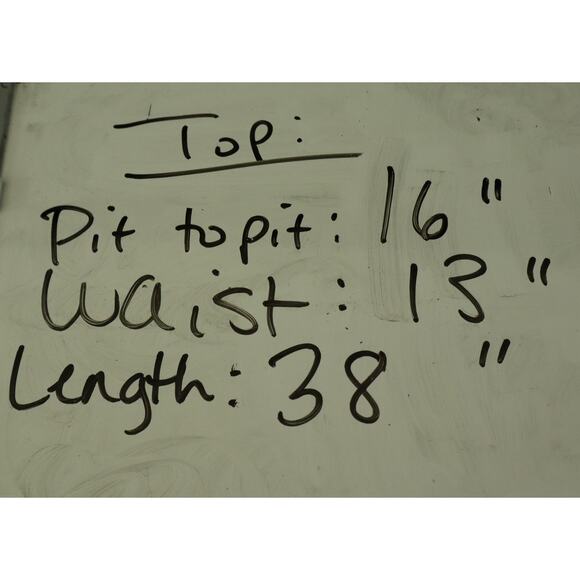 Top:
Pit to pit: 16"
Waist: 13"
Length: 38"